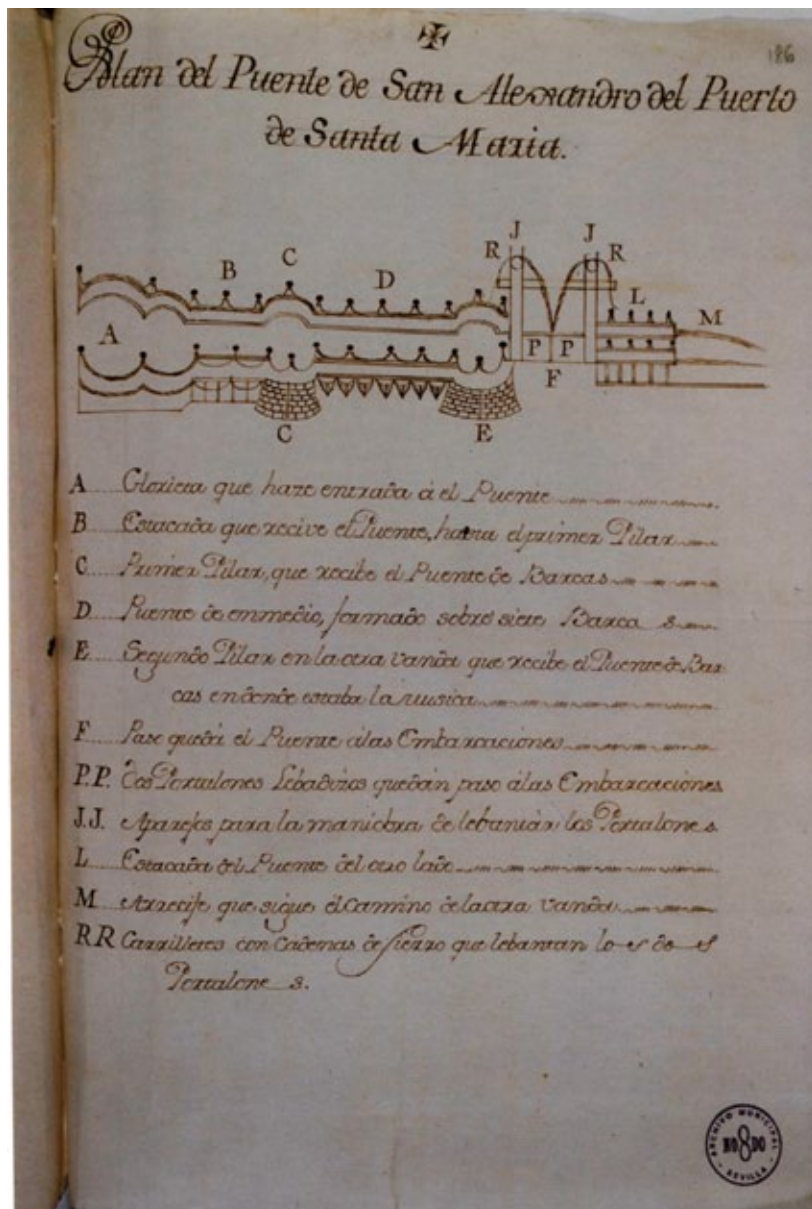 186
Plan del Puente de San Alexandro del Puerto
de Santa Maria.
J J
C R R
B D L
M
A
P P
F
C E
A Glorieta que haze entrada á el Puente
B Estacada que recive el Puente, hasta el primer Pilar
C Primer Pilar, que recibe el Puente de Barcas
D Puente de enmedio, formado sobre siete Barcas
E Segundo Pilar en la otra vanda que recibe el Puente de Bar
cas en donde estaba la musica
F Paso que dá el Puente á las Embarcaciones
P.P. Dos Portalones Lebadizos que dan paso á las Embarcaciones
J.J. Aparejos para la maniobra de lebantar los Portalones
L Estacada del Puente del otro lado
M Arrecife que sigue el Camino de la otra vanda
R R Carrilleres con Cadenas de fierro que lebantan los dos
Portalones.
ARCHIVO MUNICIPAL
NO8DO
SEVILLA